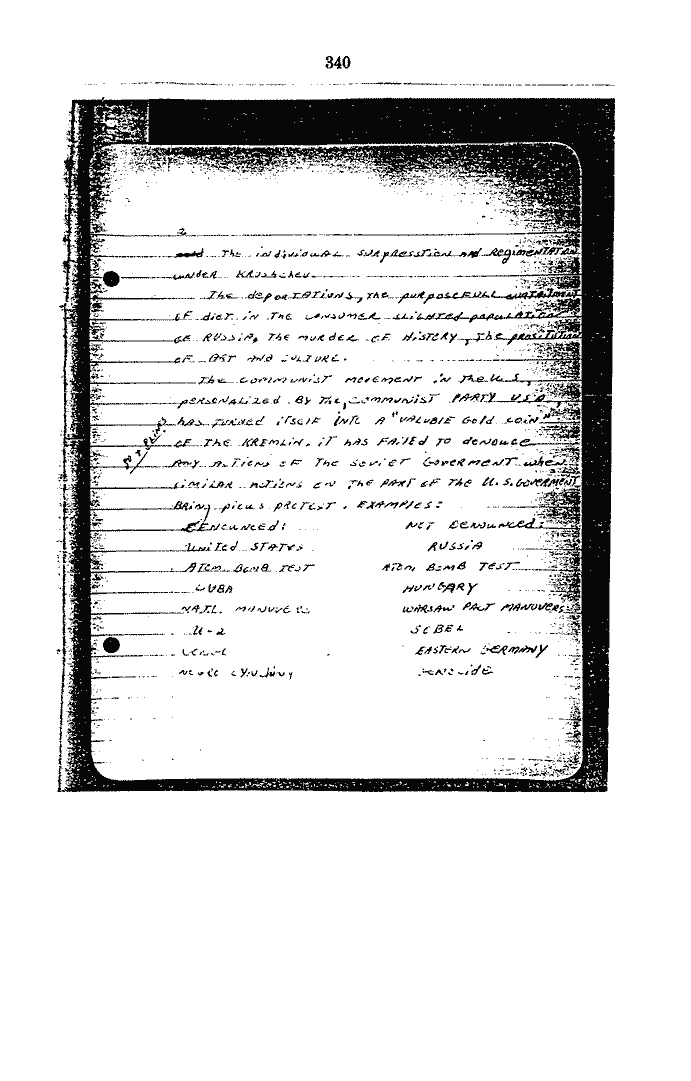 340
2
The individual surpresstion and Regimentation
under Krushchev.
The deportations, the purposefull curtailment
of diet in the consumer slighted population
of Russia, the murder of history, the prositution
of art and culture.
The communist movement in the U.S.,
personalized by the, Communist Party U.S.A,
has turned itself into a "valuble gold coin"
of the Kremlin. it has failed to denouce
any actions of the Soviet Goverment when
similar actions on the part of the U.S. Goverment
bring pious protest. Examples:
Denounced: Not Denounced:
United States Russia
Atom Bomb Test Atom Bomb Test
Cuba Hungary
Warsaw Pact Manuvers
U-2 Sobel
Eastern Germany
Genocide